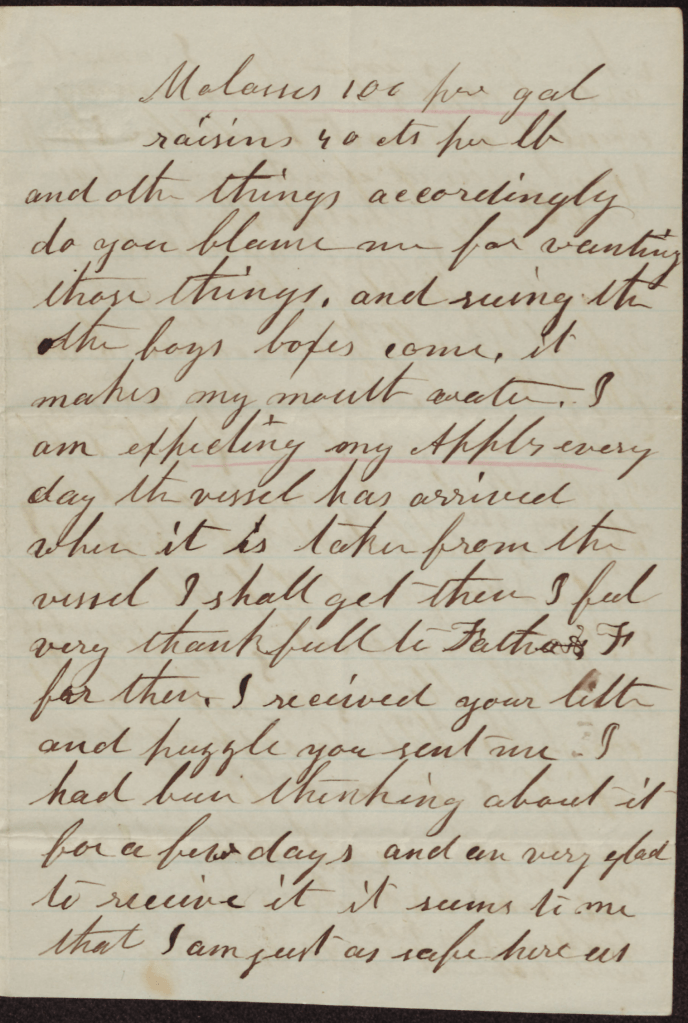 Molasses 100 per gal
raisins 40 cts per lb
and othr things accordingly
do you blame me for wanting
those things. and seeing the
othr boys boxes come, it
makes my mouth water. I
am expecting my Apples every
day the vessel has arrived
when it is taken from the
vessel I shall get them I feel
very thankfull to Father F
for them. I received your letter
and puzzle you sent me I
had been thinking about it
for a few days and am very glad
to receive it it seems to me
that I am just as safe here as